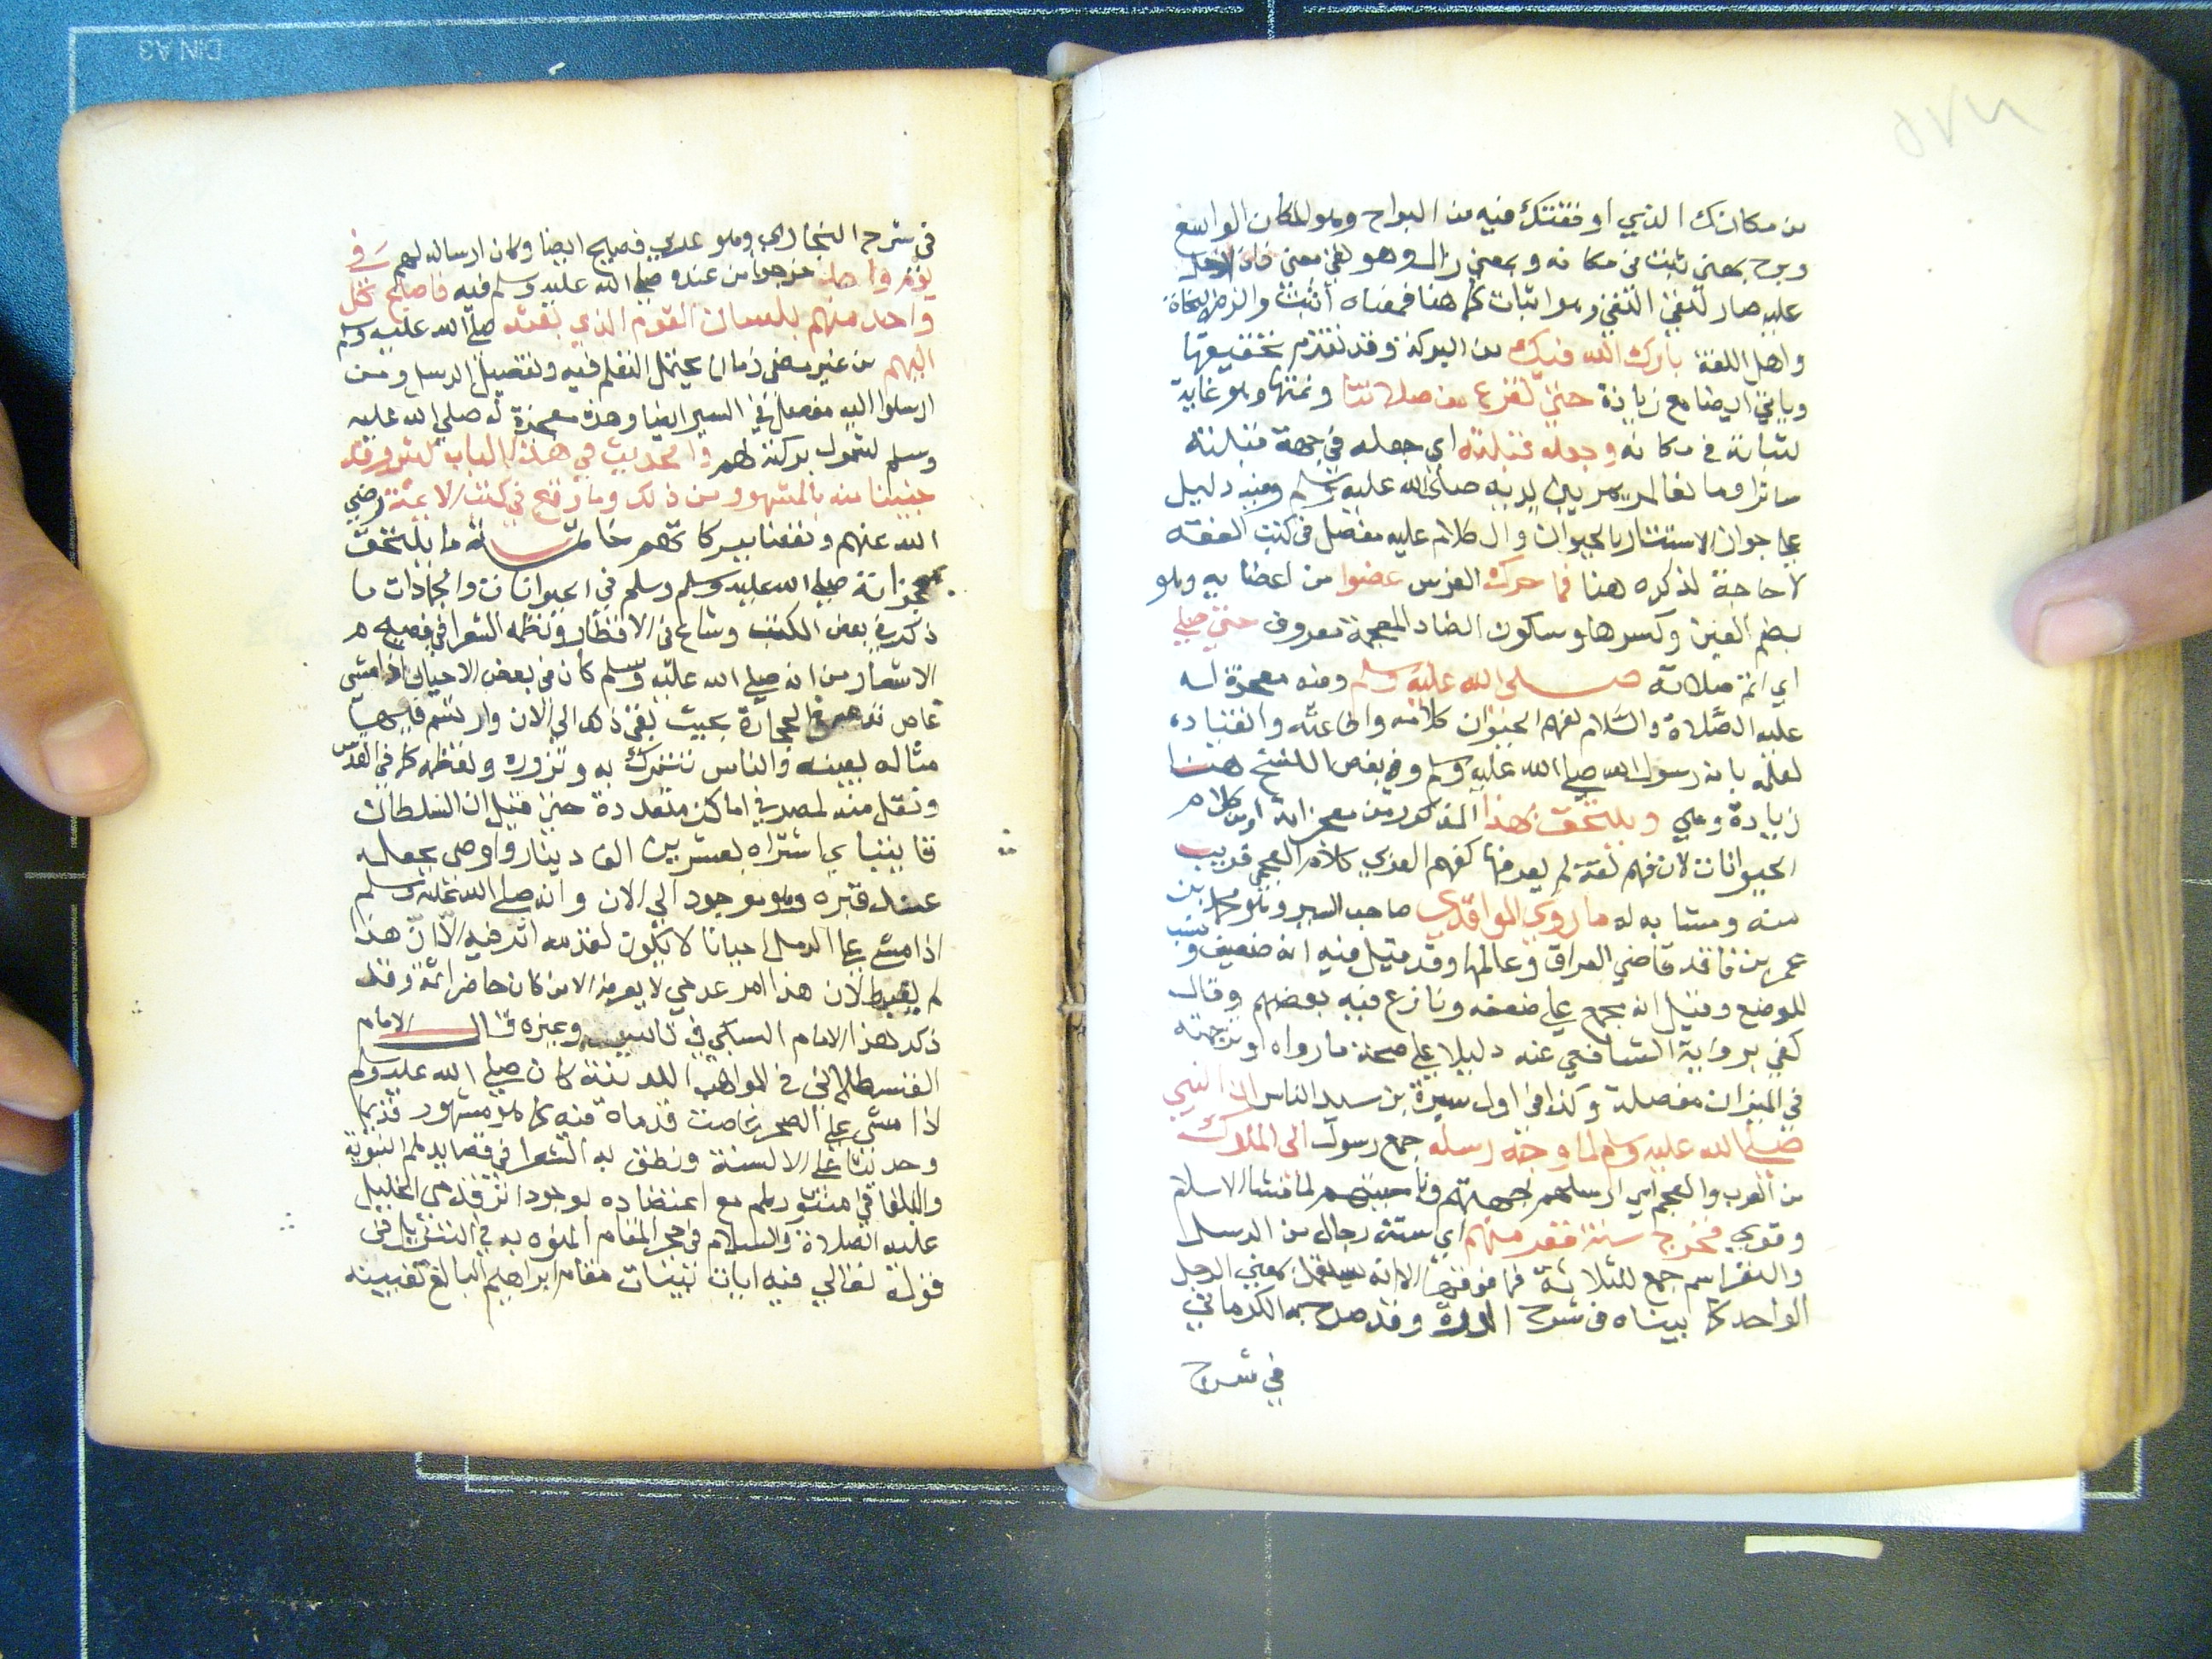 من مكانك الذي اوقفتك فيه من البراح وهو المكان الواسع
وبرح بمعنى ثبت في مكانه وبمعنى زال وهو نفي معنى فاذا دخل
عليه صار لنفي النفي وهو اثبات كما هنا فمعناه اثبت والزم النحاة
واهل اللغة بارك الله فيك من البركة وقد تقدم تحقيقها
وياتي ايضا مع زيادة حتى نفرغ من صلاتنا ونتمها وهو غاية
لثباته في مكانه وجعله قبلته اي جعله في جهة قبلته
ساترا ومانعا لمن يمر بين يديه صلى الله عليه وسلم وفيه دليل
على جواز الاستتار بالحيوان والكلام عليه مفصل في كتب الفقه
لا حاجة لذكره هنا فما حرك الفرس عضوا من اعضايه وهو
بضم العين وكسرها وسكون الضاد المعجمة معروف حتى صلى
اي اتم صلاته صلى الله عليه وسلم وفيه معجزة له
عليه الصلاة والسلام لفهم الحيوان كلامه واطاعته وانقياده
لعلمه بانه رسول الله صلى الله عليه وسلم وفي بعض النسخ هنا
زيادة وهي ويلتحق بهذا المذكور من معجزاته او من كلام
الحيوانات لان فهم لغة لم يعرفها كفهم العربي كلام العجمي قريب
منه ومشابه له ما روي الواقدي صاحب السير وهو محمد بن
عمر بن واقد قاضي العراق وعالمها وقد قيل فيه انه ضعيف ونسب
للوضع وقيل انه مجمع على ضعفه ونازع فيه بعضهم وقال
كفى برواية الشافعي عنه دليلا على صحة ما رواه وترجمته
في الميزان مفصلة وكذا في اول سيرة بن سيد الناس ان النبي
صلى الله عليه وسلم لما وجه رسله جمع رسول الى الملوك
من العرب والعجم اي ارسلهم لجهاتهم لما فشا الاسلام
وقوي فخرج ستة نفر منهم اي ستة رجال من الرسل
والنفر اسم جمع للثلاثة فما فوقها الا انه يستعمل بمعنى الرجل
الواحد كما بيناه في شرح الدرة وقد صرح به الكرماني
في شرح
في شرح البخاري وهو عربي فصيح ايضا وكان ارساله لهم في
يوم واحد خرجوا من عنده صلى الله عليه وسلم فيه فاصبح كل
واحد منهم بلسان القوم الذي بعثه صلى الله عليه وسلم
اليهم من غير مضى زمان يحتمل التعلم فيه وتفصيل الرسل ومن
ارسلوا اليه مفصل في السير ايضا وهذه معجزة له صلى الله عليه
وسلم لشمول بركته لهم والحديث في هذا الباب كثير وقد
جينا منه بالمشهور من ذلك وما وقع في كتب الائمة رضي
الله عنهم ونفعنا ببركاتهم خاتمة ما يلتحق
بمعجزاته صلى الله عليه وسلم وسلم في الحيوانات والجمادات ما
ذكر في بعض الكتب وشاع في الاقطار ونظمه الشعرا في فصيح
الاشعار من انه صلى الله عليه وسلم كان في بعض الاحيان اذا مشى
غاص قدمه في الحجارة بحيث بقي ذلك الى الان وارتسم فيها
مثاله بعينه والناس تتبرك به وتزوره وتعظمه كما في القدس
ونقل منه لمصر في اماكن متعددة حتى قيل ان السلطان
قايتباي اشتراه بعشرين الف دينار واوصى بجعله
عند قبره وهو موجود الى الان وانه صلى الله عليه وسلم
اذا مشى على الرمل احيانا لا يكون لقدمه اثر فيه الا ان هذا
لم يضبط لان هذا امر عدمي لا يعرفه الا من كان حاضرا ثمة وقد
ذكر هذا الامام السبكي في تائيته وغيره قال الامام
القسطلاني في المواهب اللدنية كان صلى الله عليه وسلم
اذا مشى على الصخر غاصت قدماه فيه كما هو مشهور قديما
وحديثا على الالسنة ونطق به الشعرا في قصايدهم النبوية
والبلغا في منثورهم مع اعتضاده بوجود اثر قدمي الخليل
عليه الصلاة والسلام في حجر المقام المنوه به في التنزيل في
قوله تعالى فيه ايات بينات مقام ابراهيم البالغ تعيينه